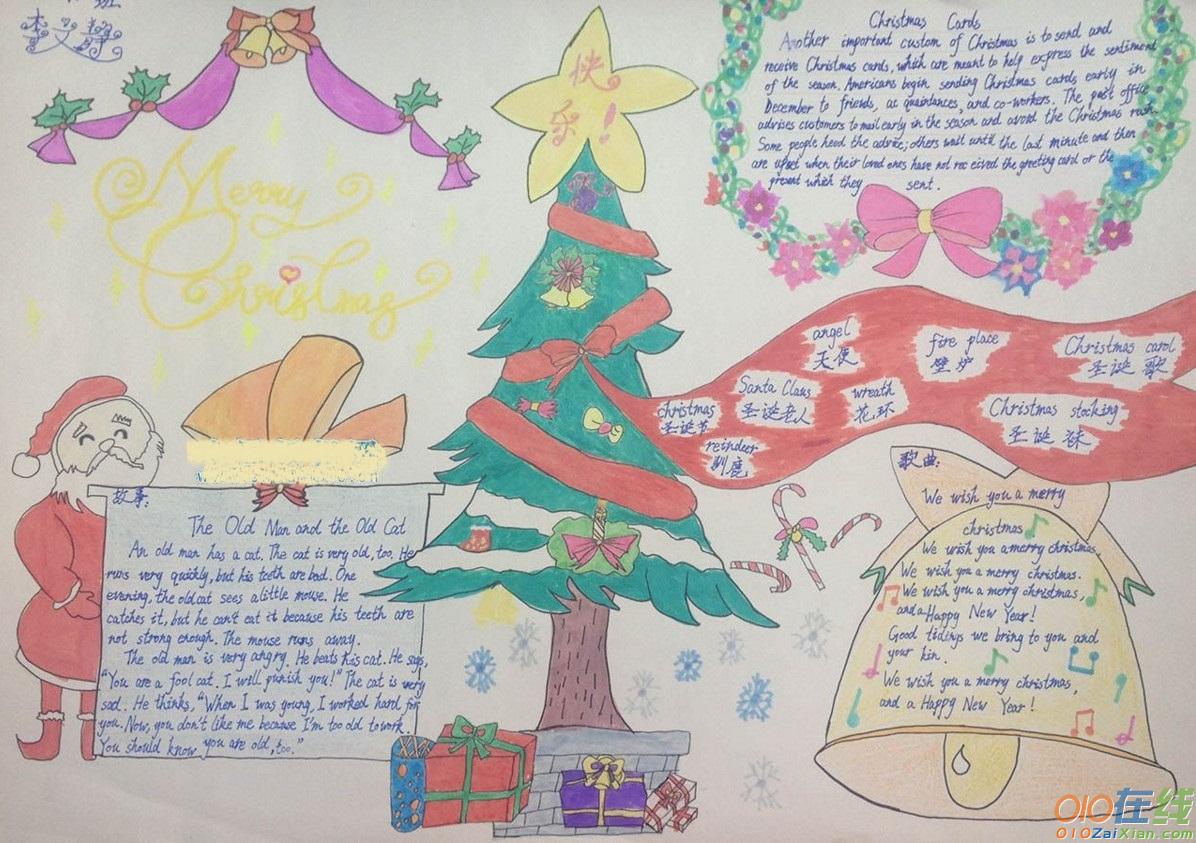 班
Merry
Christmas
快
乐!
Christmas Cards
Another important custom of Christmas is to send and
receive Christmas cards, which are meant to help express the sentiment
of the season. Americans begin sending Christmas cards early in
December to friends, ac quaintances, and co-workers. The post office
advises customers to mail early in the season and avoid the Christmas rush.
Some people heed the advice; others wait until the last minute and then
are upset when their loved ones have not rec eived the greeting card or the
present which they sent.
angel
天使
fire place
壁炉
Christmas carol
圣诞歌
Santa Claus
圣诞老人
wreath
花环
christmas
圣诞节
Christmas stocking
圣诞袜
reindeer
驯鹿
故事:
The Old Man and the Old Cat
An old man has a cat. The cat is very old, too. He
runs very quickly, but his teeth are bad. One
evening, the old cat sees a little mouse. He
catches it, but he can't eat it because his teeth are
not strong enough. The mouse runs away.
The old man is very angry. He beats his cat. He says,
"You are a fool cat. I will punish you!" The cat is very
sad. He thinks, "When I was young, I worked hard for
you. Now, you don't like me because I'm too old to work.
You should know you are old, too."
歌曲:
We wish you a merry
christmas
We wish you a merry christmas,
We wish you a merry christmas.
We wish you a merry christmas,
and a Happy New Year!
Good tidings we bring to you and
your kin.
We wish you a merry christmas,
and a Happy New Year!
010在线
010ZaiXian.com